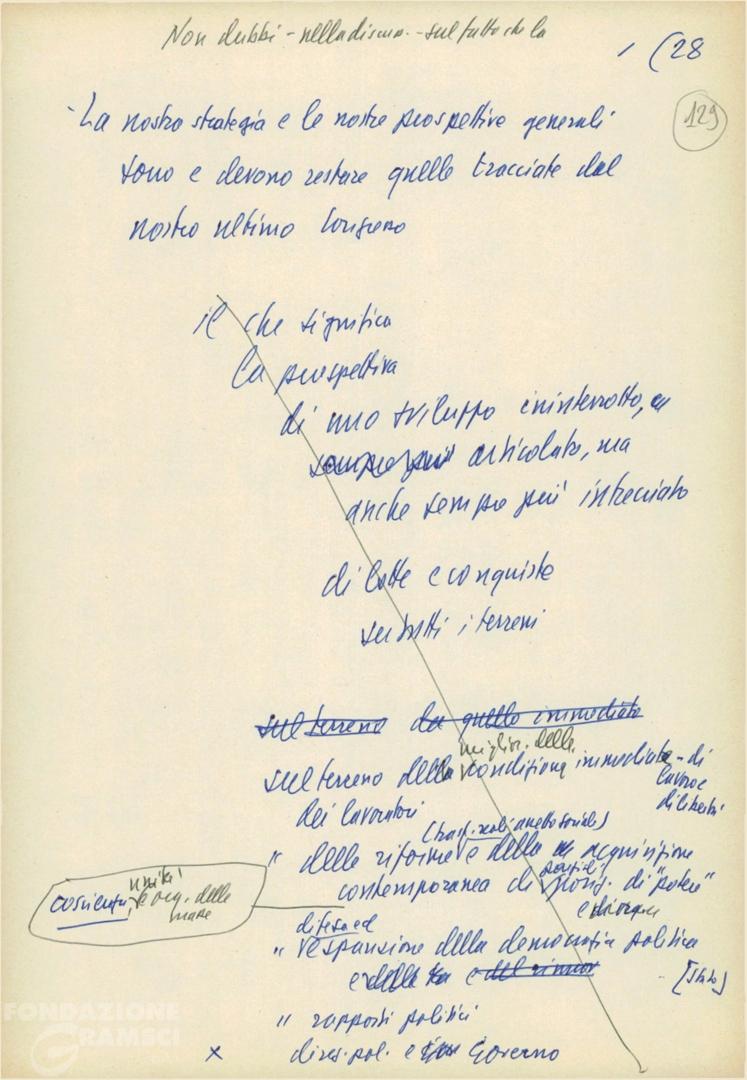 Non dubbi - nella discuss. - sul fatto che la
1 (28
129
- La nostra strategia e le nostre prospettive generali
sono e devono restare quelle tracciate dal
nostro ultimo Congresso
il che significa
la prospettiva
di uno sviluppo ininterrotto,
sempre più articolato, ma
anche sempre più intrecciato
di lotte e conquiste
su tutti i terreni
sul terreno da quello immediato
miglior. delle
sul terreno della condizione immediata - di
lavoro e
di libertà
dei lavoratori
" delle riforme e della acquisizione
contemporanea di posiz. di "potere"
coscienza, unità e org. delle
masse
difesa ed
" espansione della democrazia politica
e della e del
[Stato]
" rapporti politici
x direz. pol. e Governo
FONDAZIONE
GRAMSCI